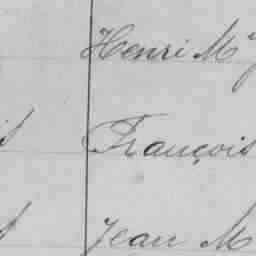 Henri M
François
Jean M